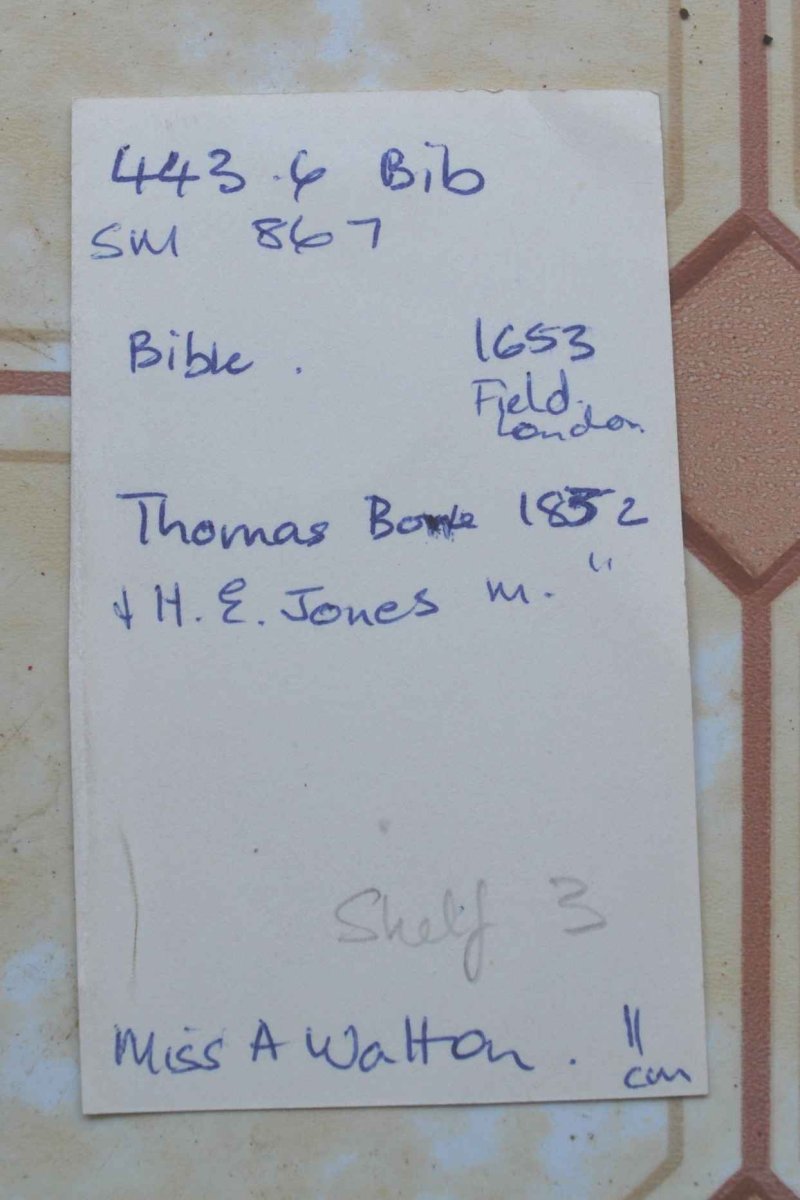 443.6 Bib
SM 867
Bible. 1653
Field.
London.
Thomas 1852
+ H. E. Jones m. "
Shelf 3
Miss A Walton. 11
cm